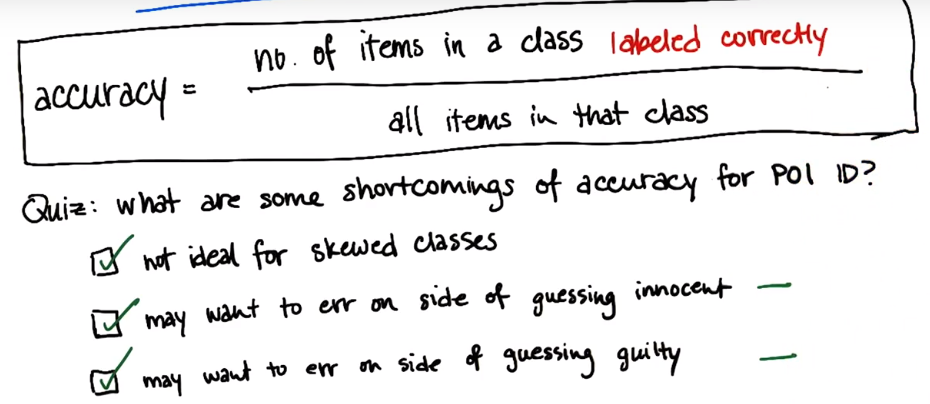 no. of items in a class labeled correctly
accuracy =
all items in that class
Quiz: what are some shortcomings of accuracy for POI ID?
not ideal for skewed classes
may want to err on side of guessing innocent —
may want to err on side of guessing guilty —